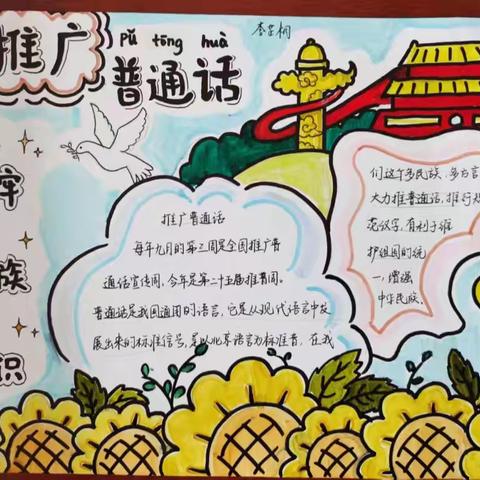 推广
pǔ tōng huà
普通话
牢
族
识
推广普通话
每年九月的第三周是全国推广普
通话宣传周,今年是第二十五届推普周。
普通话是我国通用的语言,它是从现代语言中发
展出来的标准信号,是以北京语言为标准音,在我
们这个多民族、多方言
大力推普通话,推行规
范汉字,有利于维
护祖国的统
一,增强
中华民族.